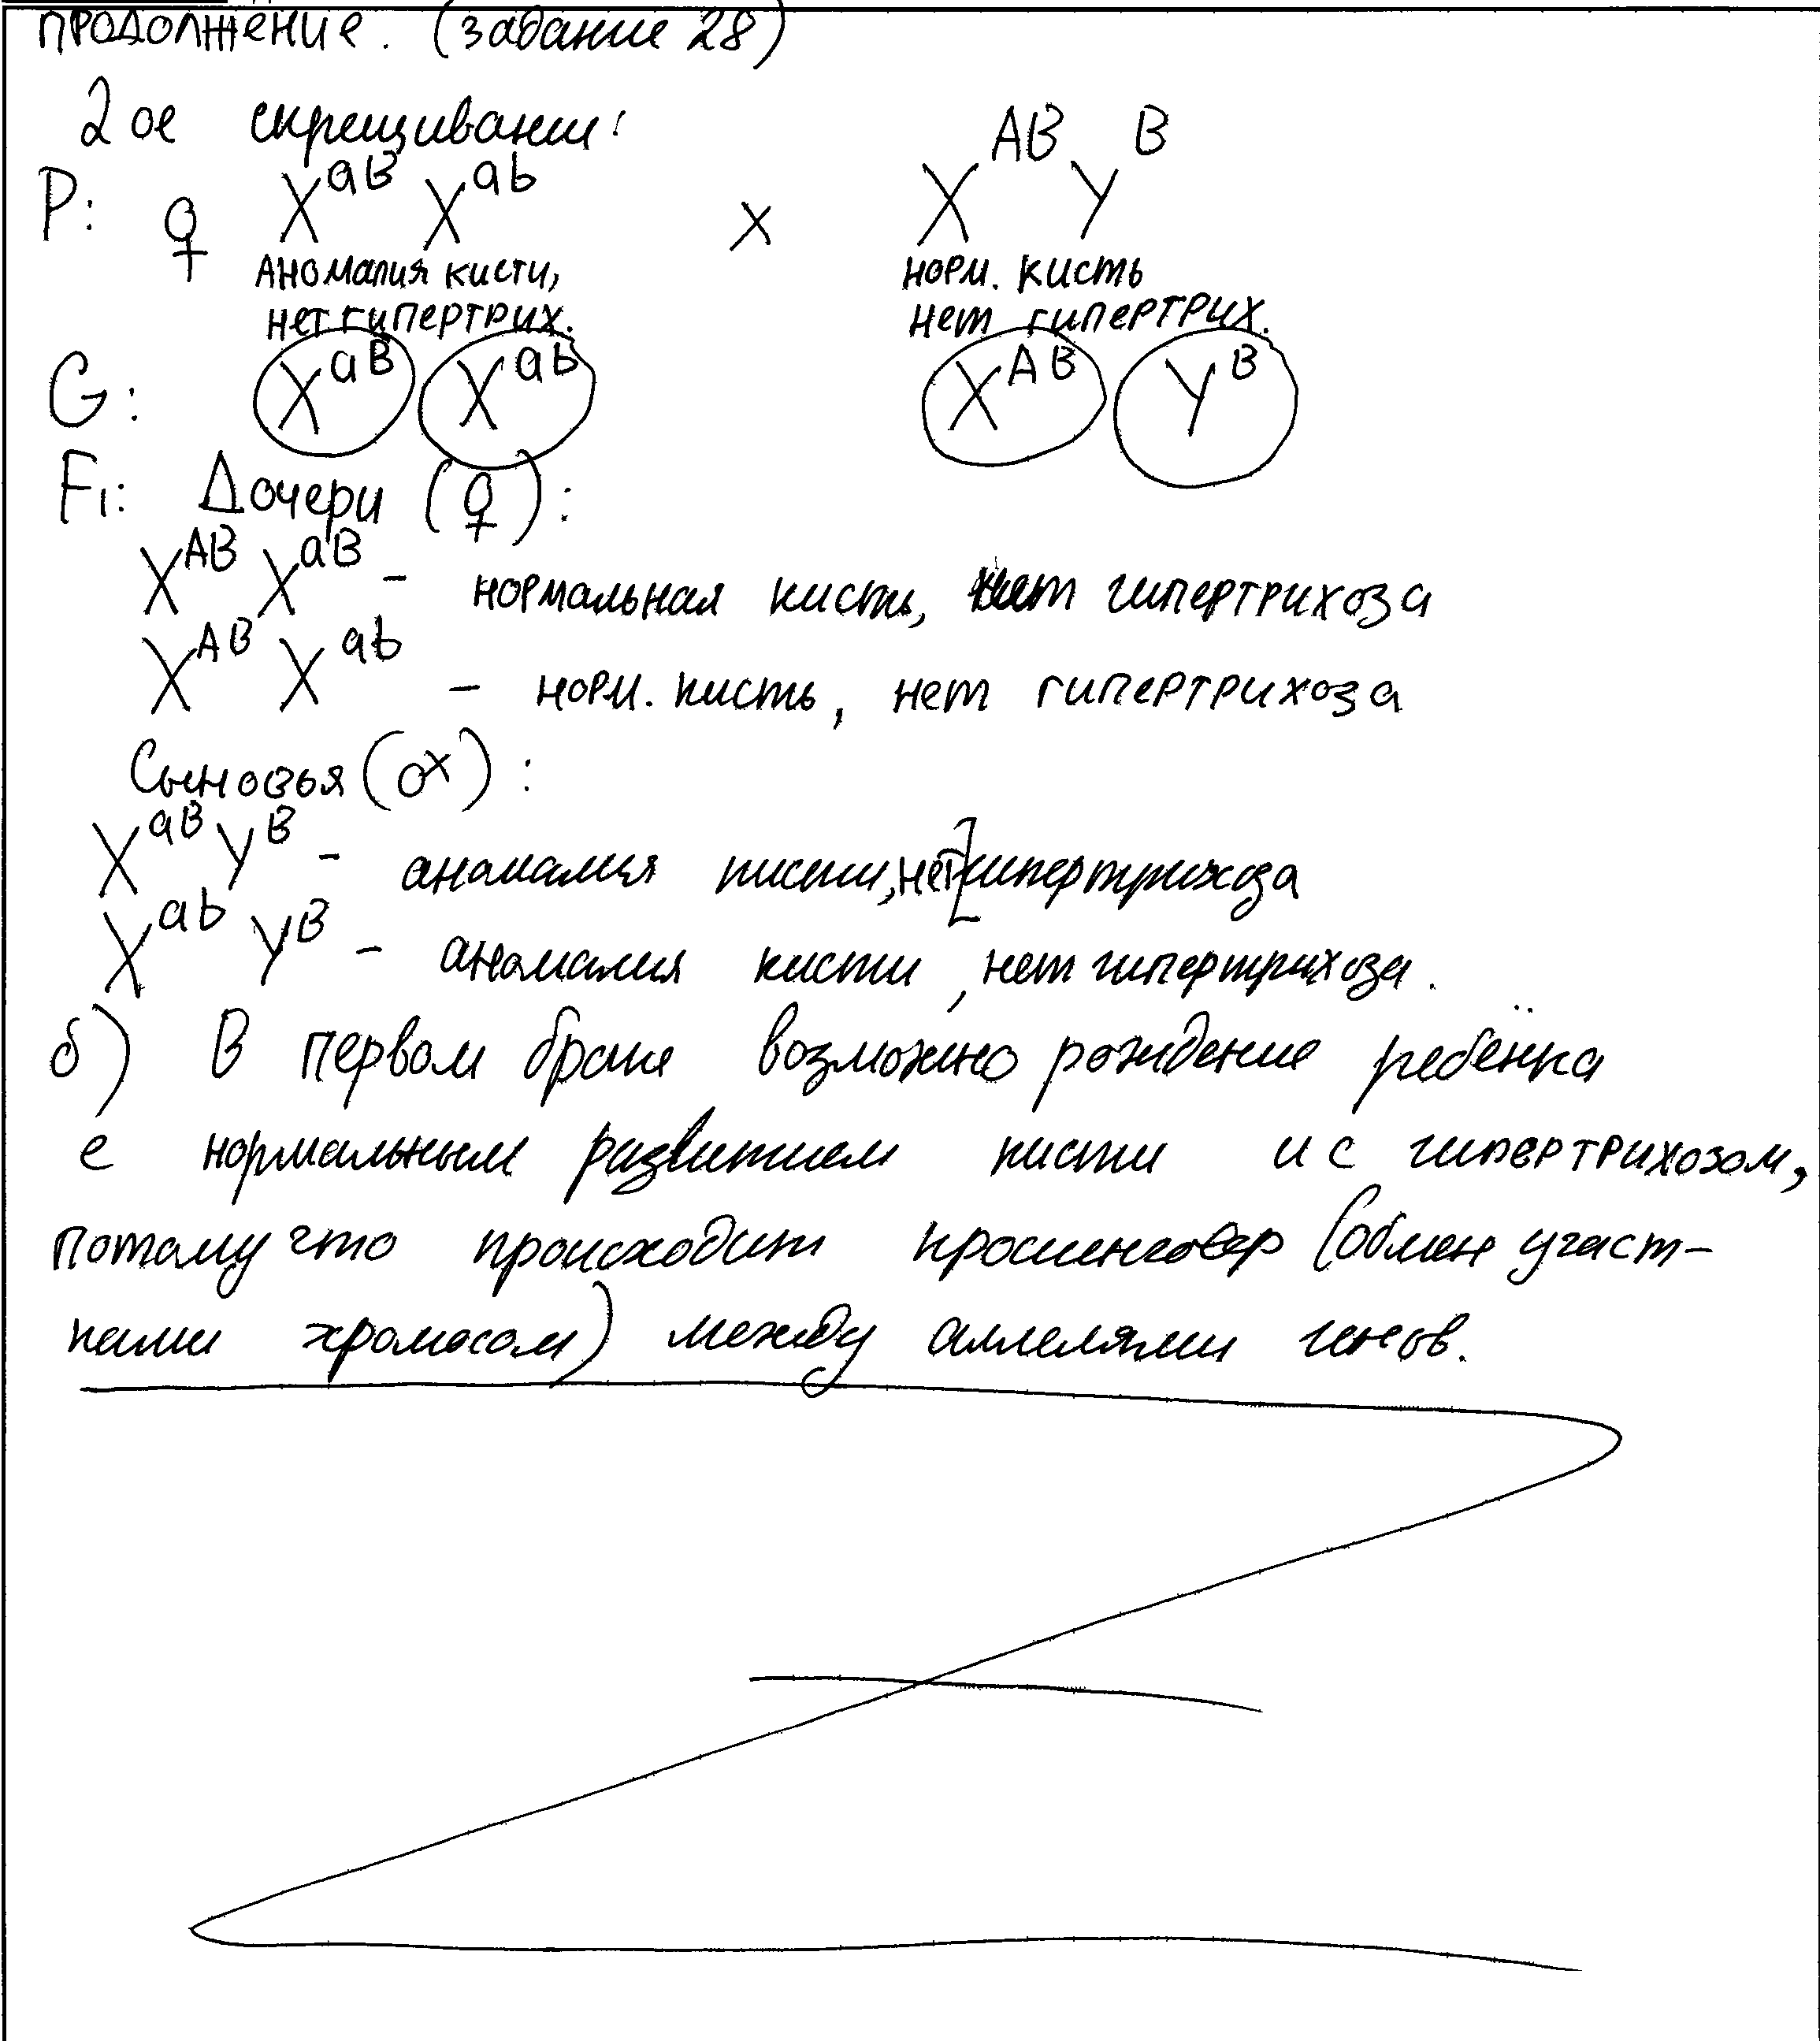 продолжение. (задание 28)
2ое скрещивание:
P: ♀ X^aB X^ab x X^AB Y^B
Аномалия кисти, норм. кисть
нет гипертрих. нет гипертрих.
G: X^aB X^ab X^AB Y^B
F1: Дочери (♀):
X^AB X^aB - нормальная кисть, нет гипертрихоза
X^AB X^ab - норм. кисть, нет гипертрихоза
Сыновья (♂):
X^aB Y^B - аномалия кисти, нет гипертрихоза
X^ab Y^B - аномалия кисти, нет гипертрихоза.
б) В первом браке возможно рождение ребёнка
с нормальным развитием кисти и с гипертрихозом,
потому что происходит кроссинговер (обмен участ-
ками хромосом) между аллелями генов.